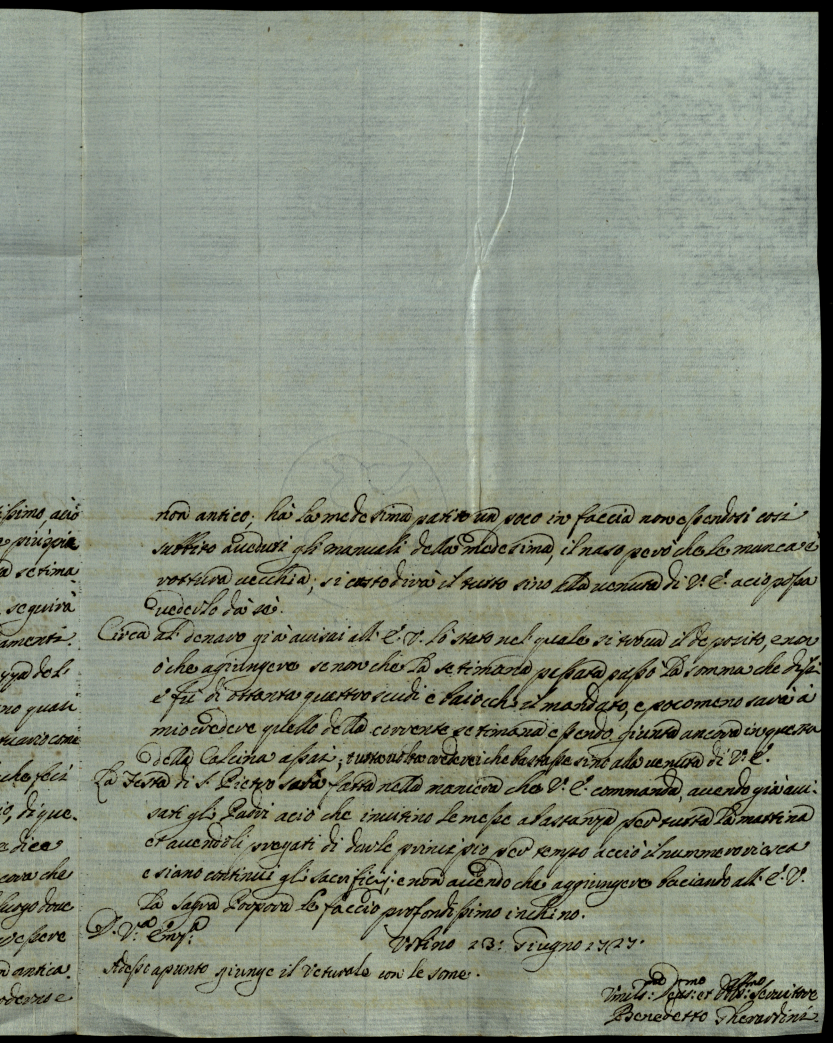 ssimo, acio
a setima
seguirà
amenti.
zza del.
no quali
che feci
io, di que.
a dice
cora che
luogo doue
d'essere
n antica.
oderno e
non antico; hà la medesima patito un poco in faccia non essendosi così
subbito aueduti gli manuali della medesima, il naso però che le manca è
rottura uecchia; si custodirà il tutto sino alla uenuta di V. E. acio possa
uederlo dà sè.
Circa al denaro già auisai all' E. V. lo stato nel quale si troua il deposito, e non
ò che agiungere se non che la setimana passata passò la somma che
e fù di ottanta quattro scudi e baiocchi il mandato, e poco meno sarà à
mio credere quello della corrente setimana essendo giunta ancora in questa
della Calcina assai; tutta uolta crederei che bastasse sino alla uenuta di V. E.
La Festa di S. Pietro sarà fatta nella maniera che V. E. commanda, auendo già aui-
sati gli Padri acio che inuitino le messe abastanza per tutta la mattina
et auendoli pregati di darle principio per tempo acciò il nummero riesca
e siano continui gli sacrificij; e non auendo che aggiungere baciando all' E. V.
la sagra Porpora le faccio profondissimo inchino.
D. V.ra Em.za
Urbino 23: Giugno 1727.
Adesso apunto giunge il Veturale con le some.
Umilis.mo Deu.mo et Obb.mo Seruitore
Benedetto Gherardini.